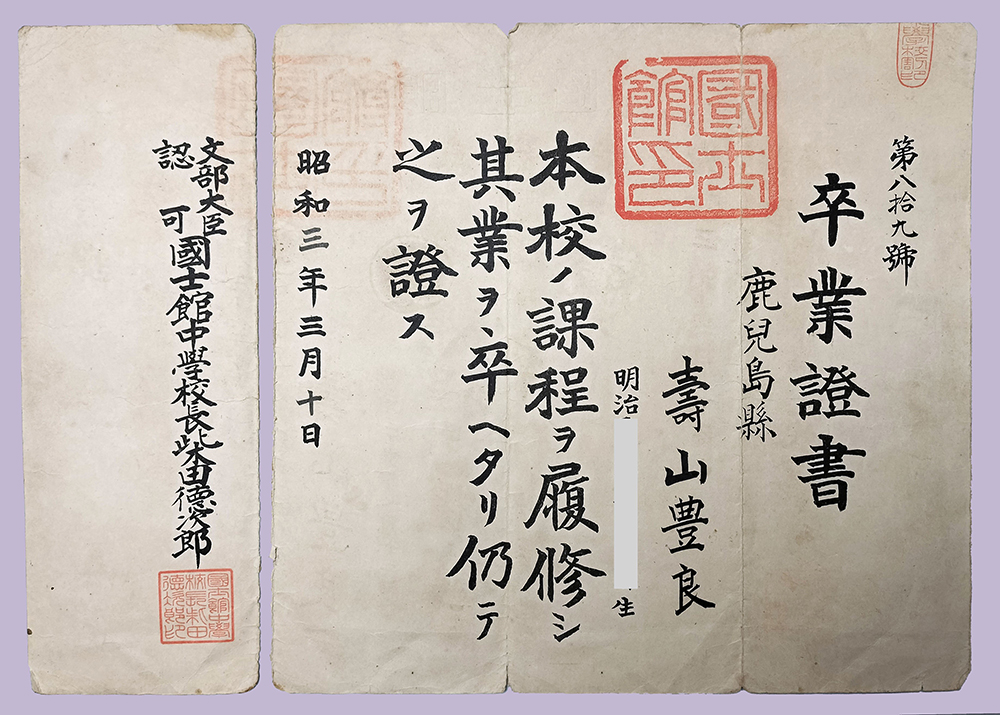 第八拾九號
卒業證書
鹿兒島縣
壽山豊良
明治
生
本校ノ課程ヲ履修シ
其業ヲ卒ヘタリ仍テ
之ヲ證ス
昭和三年三月十日
文部大臣
認可
國士館中學校長柴田德次郎
國士館印
國士館中學校長柴田德次郎印